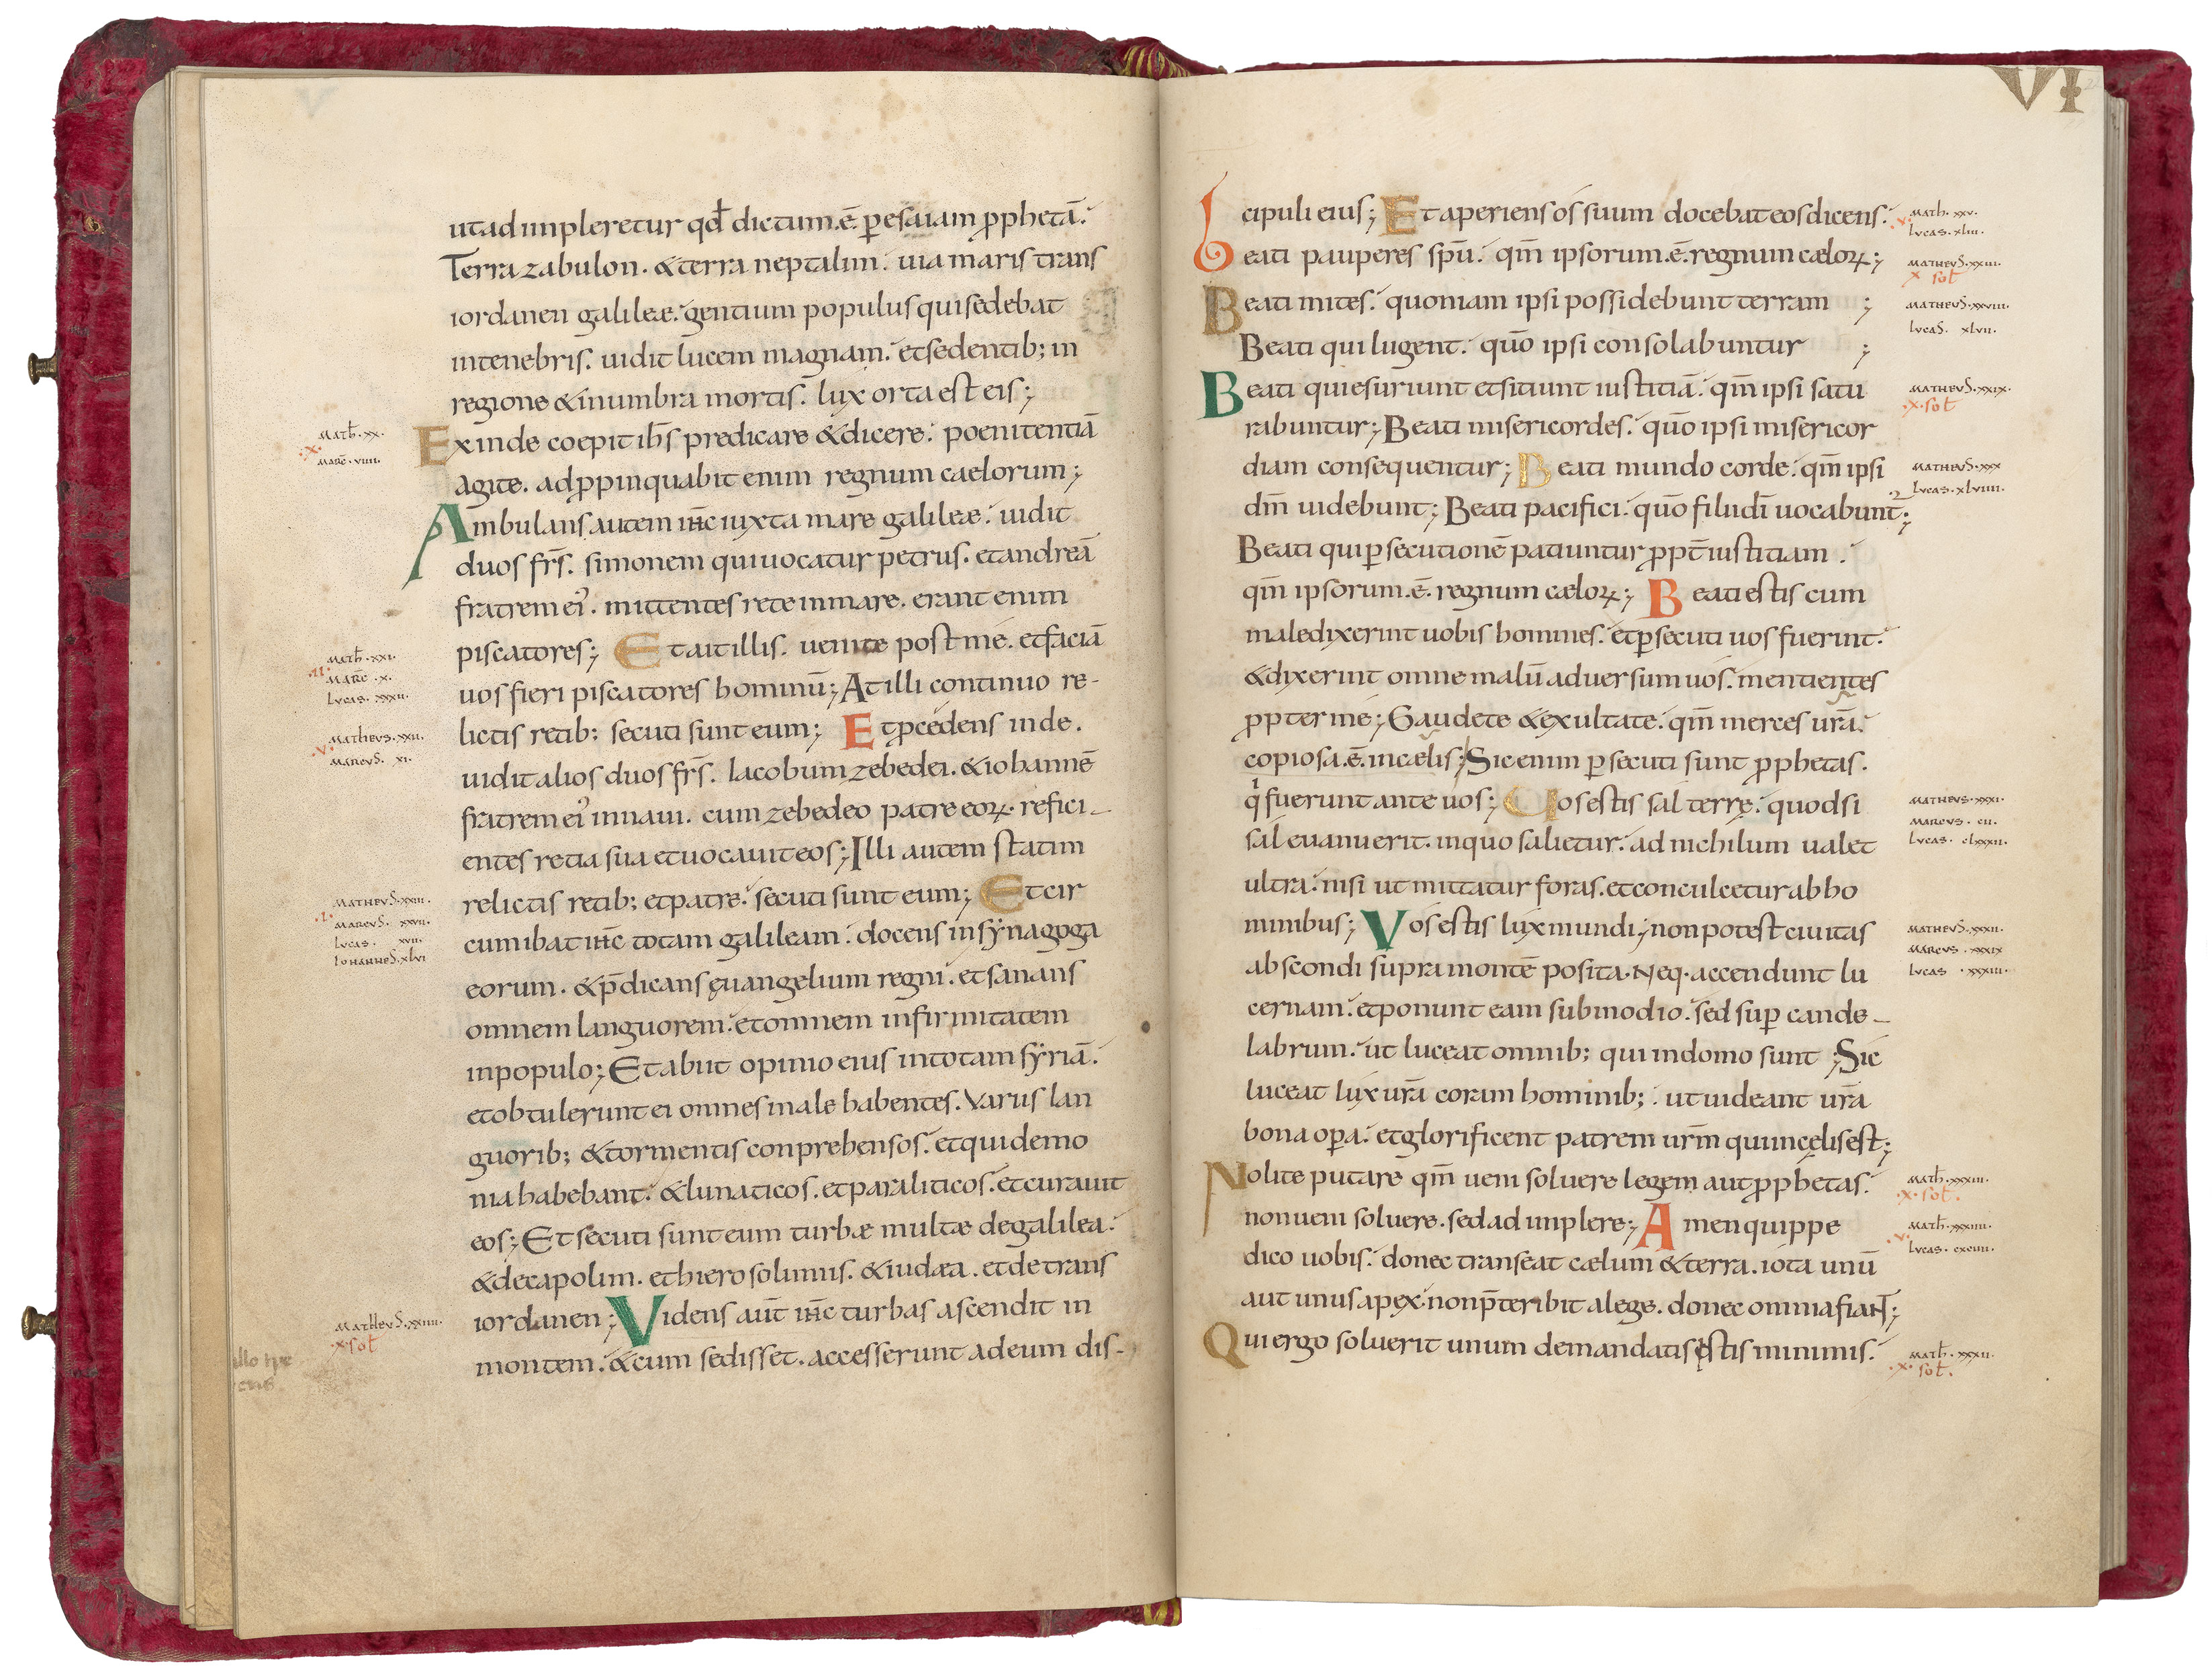 ut adimpleretur qd̄ dictum .ē. p̱ esaiam p̱phetā.
Terra zabulon. & terra neptalim. uia maris trans
iordanen galileæ. gentium populus qui sedebat
in tenebris. uidit lucem magnam. et sedentib; in
regione & in umbra mortis. lux orta est eis;
Math̄. xx.
.x.
Marc̄. viiii.
Exinde coepit ih̄s predicare & dicere. poenitentiā
agite. adp̱pinquabit enim regnum caelorum;
Ambulans autem ih̄c iuxta mare galileæ. uidit
duos fr̄s. simonem qui uocatur petrus. et andreā
fratrem ei'. mittentes rete in mare. erant enim
Math̄. xxi.
.ii.
Marc̄. x.
Lucas. xxxii.
piscatores; Et ait illis. uenite post me. et faciā
uos fieri piscatores hominū; At illi continuo re-
Matheus. xxii.
.v.
Marcus. xi.
lictis retib; secuti sunt eum; Et p̱cedens inde.
uidit alios duos fr̄s. Iacobum zebedei. & iohannē
fratrem ei' in naui. cum zebedeo patre eoꝝ. refici-
entes retia sua et uocauit eos; Illi autem statim
Matheus. xxiii.
.i.
Marcus. xxvii.
Lucas. xvii.
Iohannes. xlvi
relictis retib; et patre. secuti sunt eum; Et cir
cumibat ih̄c totam galileam. docens in synagoga
eorum. & p̄dicans ęuangelium regni. et sanans
omnem languorem. et omnem infirmitatem
in populo; Et abiit opinio eius in totam syriā.
et obtulerunt ei omnes male habentes. Variis lan
guorib; & tormentis conprehensos. et qui demo
nia habebant. & lunaticos. et paraliticos. et curauit
eos; Et secuti sunt eum turbæ multæ de galilea.
& decapolim. et hierosolimis. & iudæa. et de trans
Matheus. xxiiii.
.x. sol̄
iordanen; Videns aut̄ ih̄c turbas ascendit in
montem. & cum sedisset. accesserunt ad eum dis-
VI
cipuli eius; Et aperiens os suum docebat eos dicens.
Math̄. xxv.
.v.
Lucas. xliii.
Beati pauperes sp̄u. qm̄ ipsorum .ē. regnum cæloꝝ;
Matheus. xxiii.
x sol̄
Beati mites. quoniam ipsi possidebunt terram ;
Matheus. xxviii.
Lucas. xlvii.
Beati qui lugent. quō ipsi consolabuntur ;
Beati qui esuriunt et sitiunt iustitiā. qm̄ ipsi satu
Matheus. xxix.
.x. sol̄
rabuntur; Beati misericordes. quō ipsi misericor
diam consequentur; Beati mundo corde. qm̄ ipsi
Matheus. xxx
Lucas. xlviiii.
dm̄ uidebunt; Beati pacifici. quō filii dī uocabunt²;
Beati qui p̱secutionē patiuntur p̱pt̄ iustitiam.
qm̄ ipsorum .ē. regnum cæloꝝ; Beati estis cum
maledixerint uobis homines. et p̱secuti uos fuerint.
& dixerint omne malū aduersum uos. mentientes
p̱pter me; Gaudete & exultate. qm̄ merces ur̄a.
copiosa .ē. in cælis; Sic enim p̱secuti sunt p̱phetas.
qⁱ fuerunt ante uos; Vos estis sal terrę. quod si
Matheus. xxxi.
Marcus. cii.
Lucas. clxxxii.
sal euanuerit. in quo salietur. ad nichilum ualet
ultra. nisi ut mittatur foras. et conculcetur ab ho
minibus; Vos estis lux mundi; non potest ciuitas
Matheus. xxxii.
Marcus. xxxix
Lucas. xxxiii.
abscondi supra montē posita. Neq. accendunt lu
cernam. et ponunt eam sub modio. sed sup̱ cande-
labrum. ut luceat omnib; qui in domo sunt; Sic
luceat lux ur̄a coram hominib;. ut uideant ur̄a
bona op̱a. et glorificent patrem ur̄m qui in cęlis est;
Nolite putare qm̄ ueni soluere legem aut p̱phetas.
Math̄. xxxiii.
.x. sol̄.
non ueni soluere. sed adimplere; Amen quippe
Math̄. xxxiiii.
.v.
Lucas. cxciiii.
dico uobis. donec transeat cælum & terra. iota unū
aut unus apex. non p̄teribit a lege. donec omnia fiant;
Qui ergo soluerit unum de mandatis ęstis minimis.
Math̄. xxxii.
.x. sol̄.